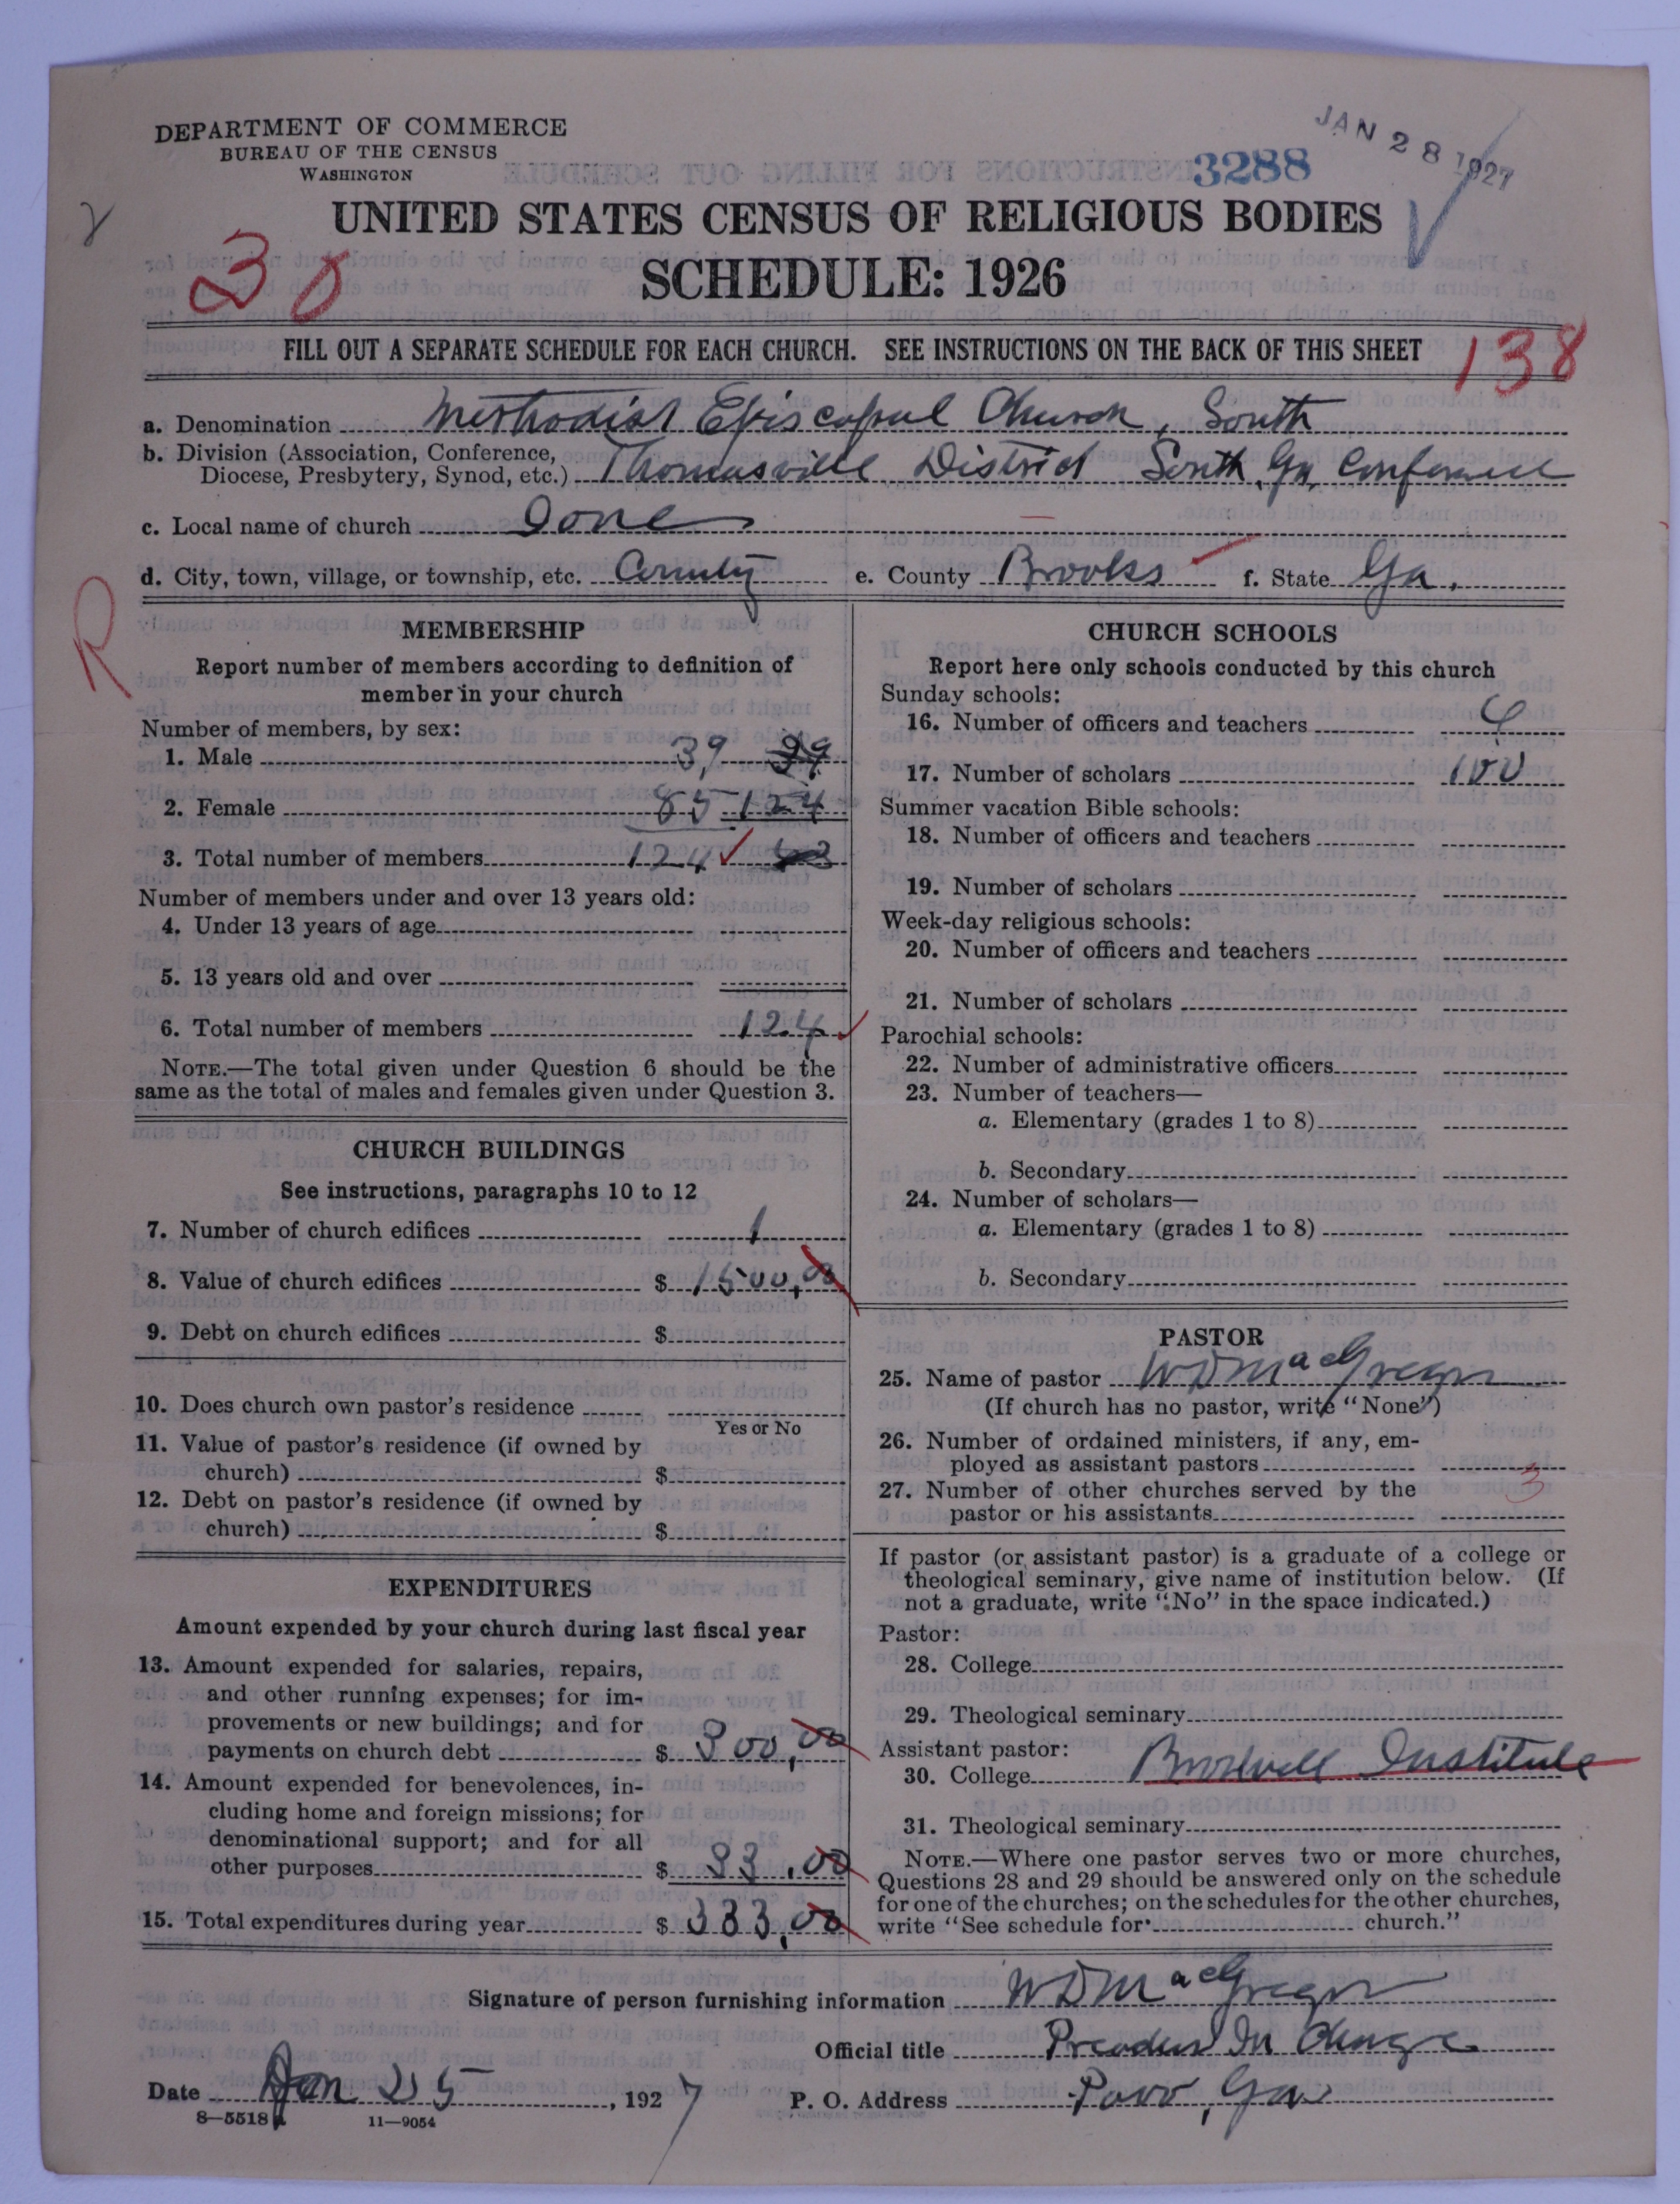 DEPARTMENT OF COMMERCE
BUREAU OF THE CENSUS
WASHINGTON
JAN 28 1927
3288
UNITED STATES CENSUS OF RELIGIOUS BODIES
SCHEDULE: 1926
30
FILL OUT A SEPARATE SCHEDULE FOR EACH CHURCH. SEE INSTRUCTIONS ON THE BACK OF THIS SHEET
138
a. Denomination Methodist Episcopal Church, South
b. Division (Association, Conference, Diocese, Presbytery, Synod, etc.) Thomasville District South Ga. Conference
c. Local name of church
d. City, town, village, or township, etc. County e. County Brooks f. State Ga.
R
MEMBERSHIP
Report number of members according to definition of
member in your church
Number of members, by sex:
1. Male 39
2. Female 85 124
3. Total number of members 124
Number of members under and over 13 years old:
4. Under 13 years of age
5. 13 years old and over
6. Total number of members 124
NOTE.—The total given under Question 6 should be the
same as the total of males and females given under Question 3.
CHURCH BUILDINGS
See instructions, paragraphs 10 to 12
7. Number of church edifices 1
8. Value of church edifices $ 1500,00
9. Debt on church edifices $
10. Does church own pastor's residence
Yes or No
11. Value of pastor's residence (if owned by
church) $
12. Debt on pastor's residence (if owned by
church) $
EXPENDITURES
Amount expended by your church during last fiscal year
13. Amount expended for salaries, repairs,
and other running expenses; for im-
provements or new buildings; and for
payments on church debt $ 300,00
14. Amount expended for benevolences, in-
cluding home and foreign missions; for
denominational support; and for all
other purposes $ 83.00
15. Total expenditures during year $ 383,00
CHURCH SCHOOLS
Report here only schools conducted by this church
Sunday schools:
16. Number of officers and teachers
17. Number of scholars 100
Summer vacation Bible schools:
18. Number of officers and teachers
19. Number of scholars
Week-day religious schools:
20. Number of officers and teachers
21. Number of scholars
Parochial schools:
22. Number of administrative officers
23. Number of teachers—
a. Elementary (grades 1 to 8)
b. Secondary
24. Number of scholars—
a. Elementary (grades 1 to 8)
b. Secondary
PASTOR
25. Name of pastor W D MacGregor
(If church has no pastor, write "None")
26. Number of ordained ministers, if any, em-
ployed as assistant pastors
27. Number of other churches served by the
pastor or his assistants 3
If pastor (or assistant pastor) is a graduate of a college or
theological seminary, give name of institution below. (If
not a graduate, write "No" in the space indicated.)
Pastor:
28. College
29. Theological seminary
Assistant pastor:
30. College Institute
31. Theological seminary
NOTE.—Where one pastor serves two or more churches,
Questions 28 and 29 should be answered only on the schedule
for one of the churches; on the schedules for the other churches,
write "See schedule for church."
Signature of person furnishing information W D MacGregor
Official title Preacher In Charge
Date Jan 25, 1927 P. O. Address Pavo, Ga
8—5518 11—9054